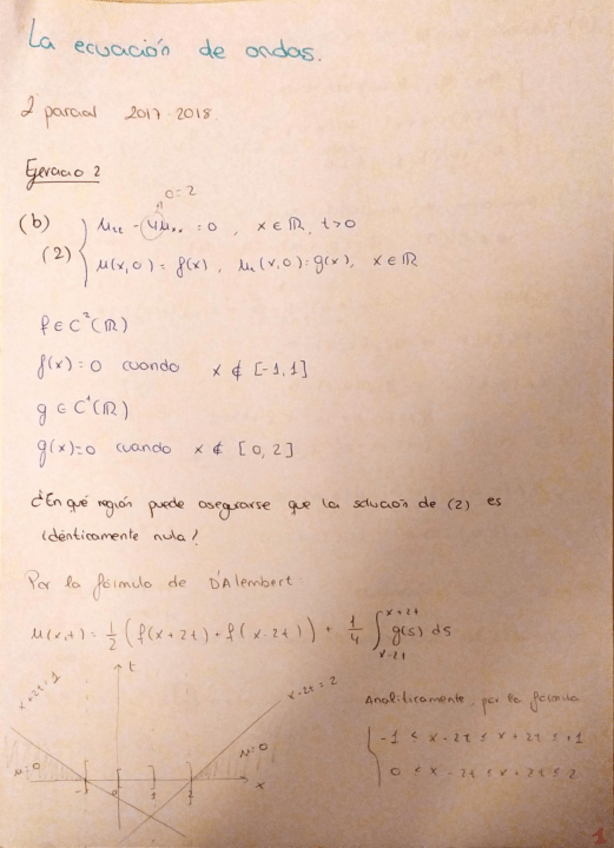 La ecuación de ondas.
2 parcial 2017-2018
Ejercicio 2
c=2
(b) u_tt - 4u_xx = 0, x ∈ ℝ, t>0
(2) u(x,0) = f(x), u_t(x,0) = g(x), x ∈ ℝ
f ∈ C²(ℝ)
f(x) = 0 cuando x ∉ [-1,1]
g ∈ C¹(ℝ)
g(x)=0 cuando x ∉ [0,2]
¿En qué región puede asegurarse que la solución de (2) es
idénticamente nula?
Por la fórmula de D'Alembert
u(x,t) = 1/2 (f(x+2t) + f(x-2t)) + 1/4 ∫_{x-2t}^{x+2t} g(s) ds
t
x-2t=2
Analíticamente, por la fórmula
-1 ≤ x-2t ≤ x+2t ≤ +1
u=0
u=0
0 ≤ x-2t ≤ x+2t ≤ 2
-1 0 1 2 x
1